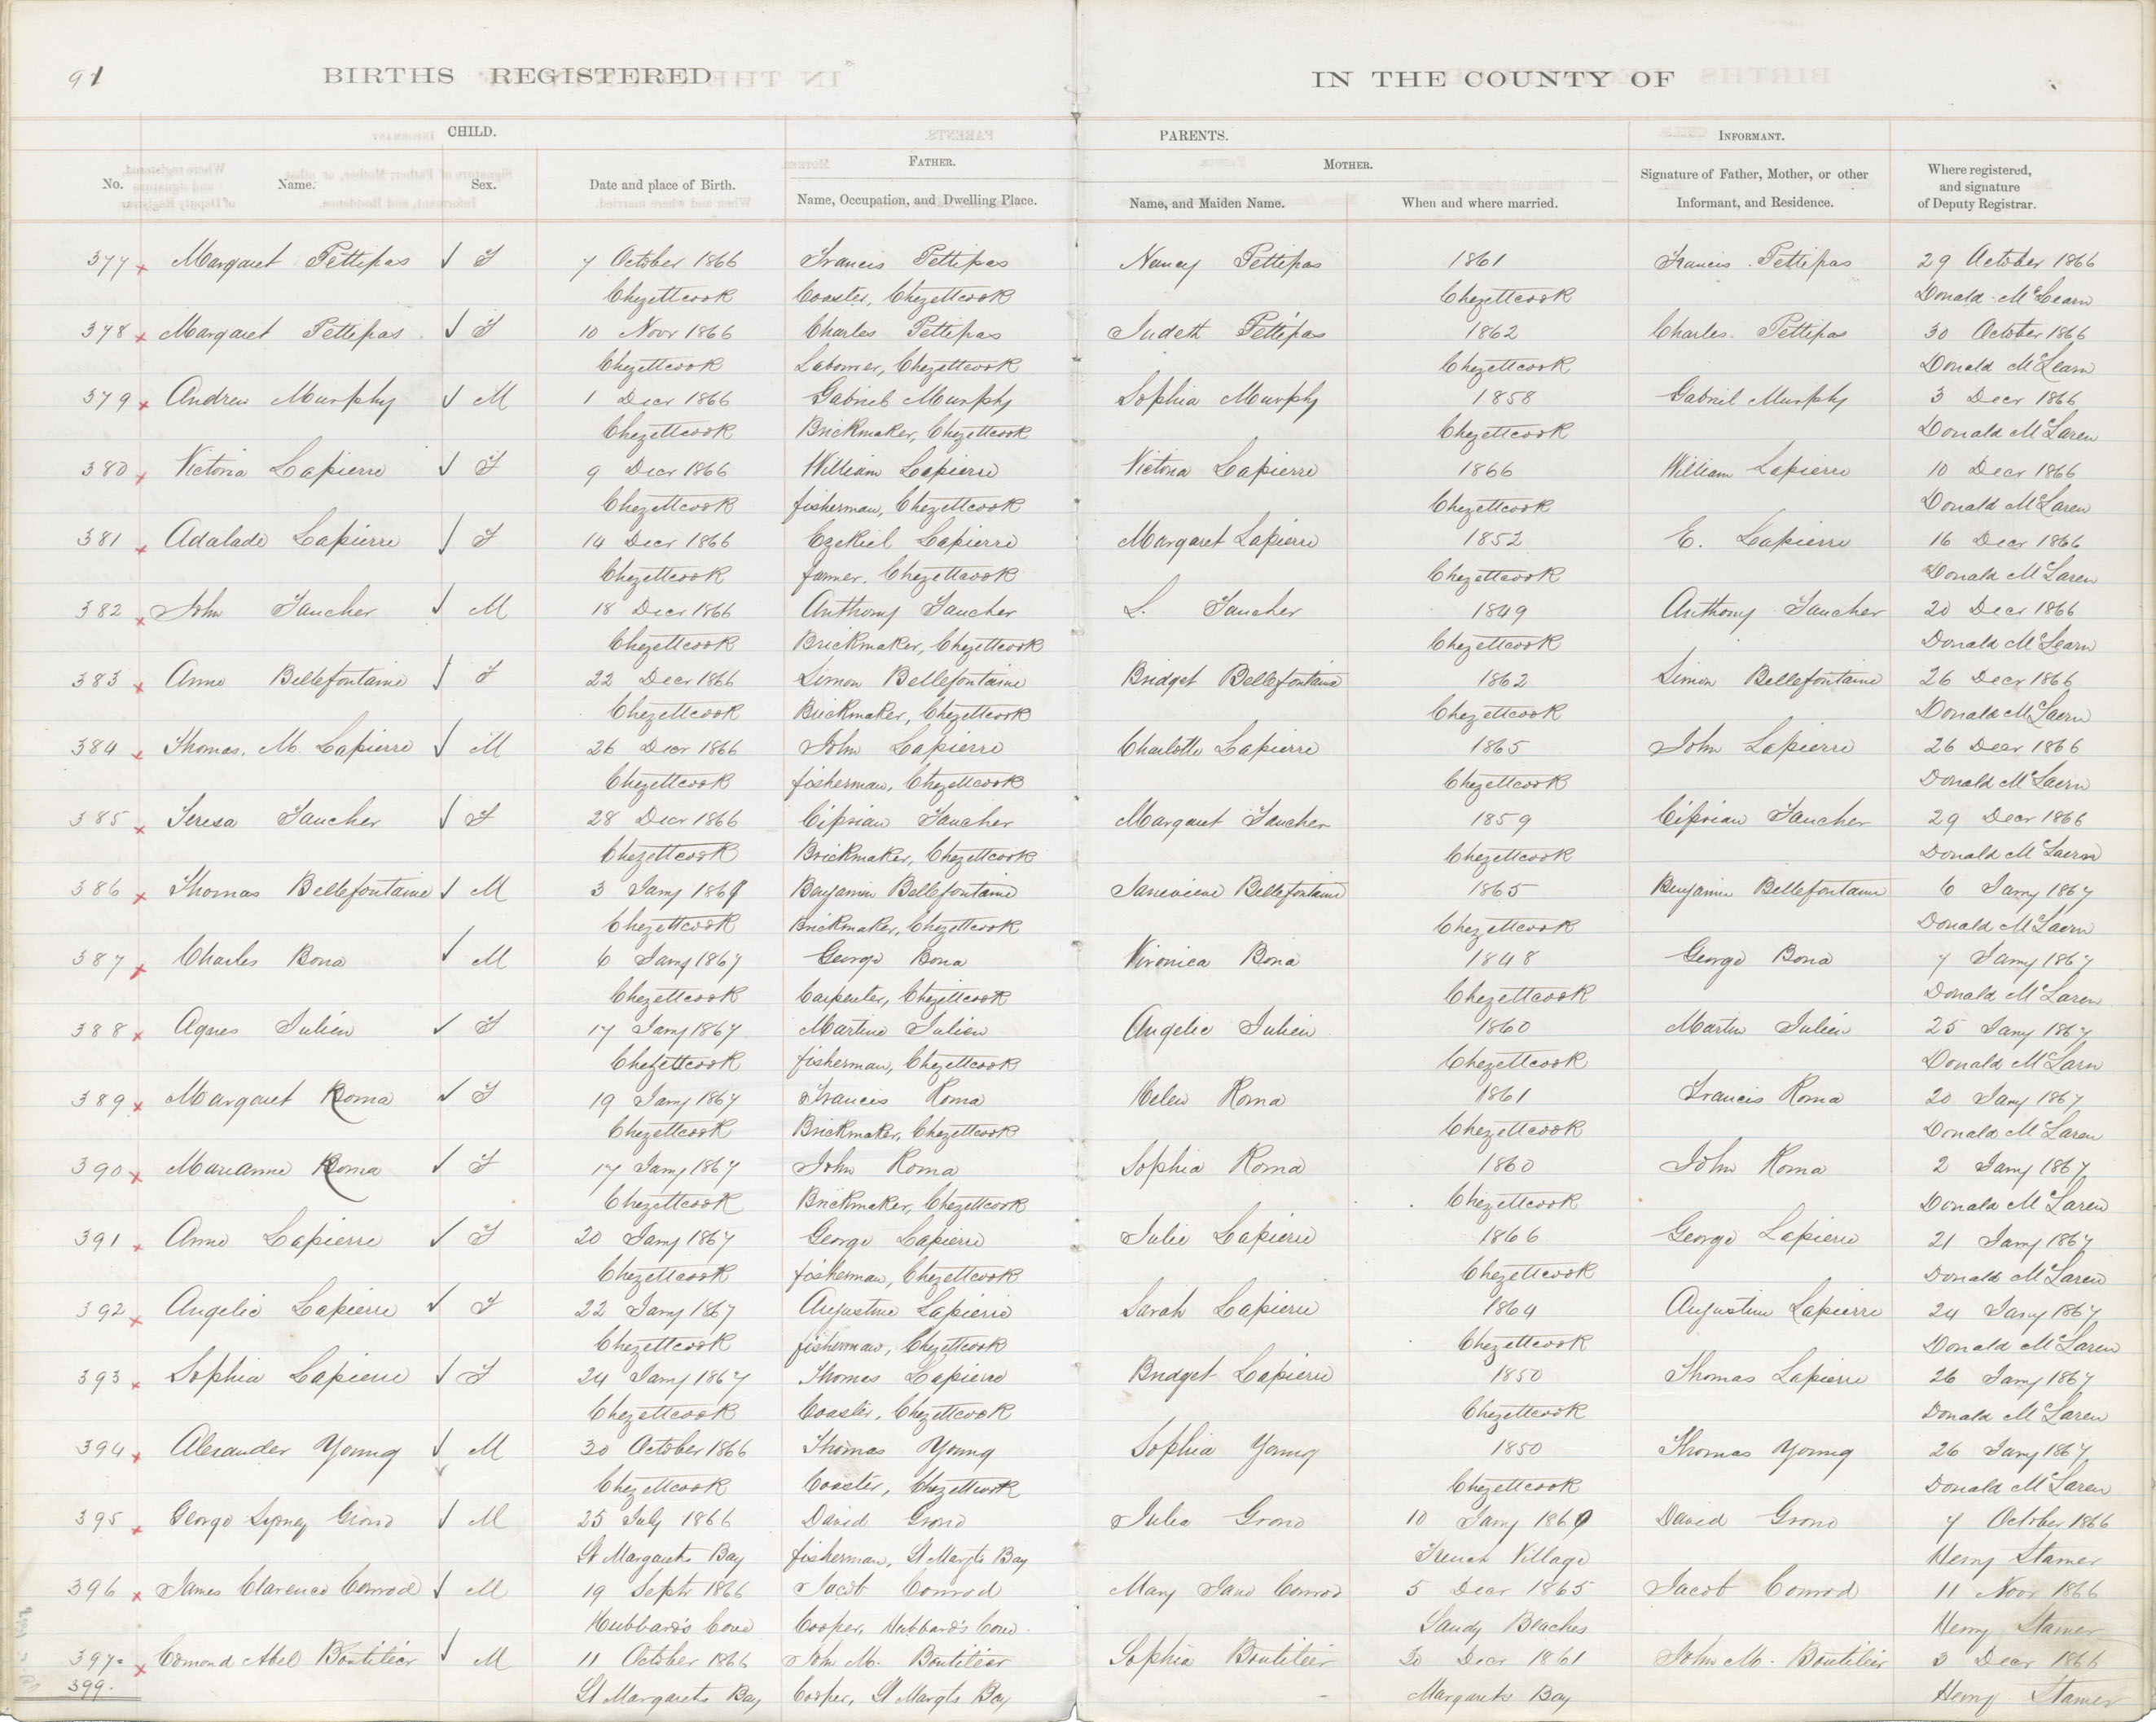 91
BIRTHS REGISTERED IN THE COUNTY OF
CHILD. PARENTS. INFORMANT.
FATHER. MOTHER.
No. Name. Sex. Date and place of Birth. Name, Occupation, and Dwelling Place. Name, and Maiden Name. When and where married. Signature of Father, Mother, or other Informant, and Residence. Where registered, and signature of Deputy Registrar.
377 Margaret Pettipas F 7 October 1866 Francis Pettipas Nancy Pettipas 1861 Francis Pettipas 29 October 1866
Chezettcook Coaster, Chezettcook Chezettcook Donald McLearn
378 Margaret Pettipas F 10 Novr 1866 Charles Pettipas Judeth Pettipas 1862 Charles Pettipas 30 October 1866
Chezettcook Labourer, Chezettcook Chezettcook Donald McLearn
379 Andrew Murphy M 1 Decr 1866 Gabriel Murphy Sophia Murphy 1858 Gabriel Murphy 3 Decr 1866
Chezettcook Brickmaker, Chezettcook Chezettcook Donald McLaren
380 Victoria Lapierre F 9 Decr 1866 William Lapierre Victoria Lapierre 1866 William Lapierre 10 Decr 1866
Chezettcook fisherman, Chezettcook Chezettcook Donald McLaren
381 Adalade Lapierre F 14 Decr 1866 Ezekiel Lapierre Margaret Lapierre 1852 E. Lapierre 16 Decr 1866
Chezettcook farmer, Chezettcook Chezettcook Donald McLaren
382 John Faucher M 18 Decr 1866 Anthony Faucher L. Faucher 1849 Anthony Faucher 20 Decr 1866
Chezettcook Brickmaker, Chezettcook Chezettcook Donald McLearn
383 Anne Bellefontaine F 22 Decr 1866 Simon Bellefontaine Bridget Bellefontaine 1862 Simon Bellefontaine 26 Decr 1866
Chezettcook Brickmaker, Chezettcook Chezettcook Donald McLaern
384 Thomas. M. Lapierre M 26 Decr 1866 John Lapierre Charlotte Lapierre 1865 John Lapierre 26 Decr 1866
Chezettcook fisherman, Chezettcook Chezettcook Donald McLaern
385 Teresa Faucher F 28 Decr 1866 Ciprian Faucher Margaret Faucher 1859 Ciprian Faucher 29 Decr 1866
Chezettcook Brickmaker, Chezettcook Chezettcook Donald McLaern
386 Thomas Bellefontaine M 3 Jany 1867 Benjamin Bellefontaine Janevieve Bellefontaine 1865 Benjamin Bellefontaine 6 Jany 1867
Chezettcook Brickmaker, Chezettcook Chezettcook Donald McLaern
387 Charles Bona M 6 Jany 1867 George Bona Vironica Bona 1848 George Bona 7 Jany 1867
Chezettcook Carpenter, Chezettcook Chezettcook Donald McLaren
388 Agnes Julien F 17 Jany 1867 Martine Julien Angelic Julien 1860 Martin Julien 25 Jany 1867
Chezettcook fisherman, Chezettcook Chezettcook Donald McLarn
389 Margaret Roma F 19 Jany 1867 Francis Roma Helen Roma 1861 Francis Roma 20 Jany 1867
Chezettcook Brickmaker, Chezettcook Chezettcook Donald McLaren
390 Marianne Roma F 17 Jany 1867 John Roma Sophia Roma 1860 John Roma 2 Jany 1867
Chezettcook Brickmaker, Chezettcook Chezettcook Donald McLaren
391 Anne Lapierre F 20 Jany 1867 George Lapierre Julie Lapierre 1866 George Lapierre 21 Jany 1867
Chezettcook fisherman, Chezettcook Chezettcook Donald McLaren
392 Angelic Lapierre F 22 Jany 1867 Augustine Lapierre Sarah Lapierre 1864 Augustine Lapierre 24 Jany 1867
Chezettcook fisherman, Chezettcook Chezettcook Donald McLaren
393 Sophia Lapierre F 24 Jany 1867 Thomas Lapierre Bridget Lapierre 1850 Thomas Lapierre 26 Jany 1867
Chezettcook Coaster, Chezettcook Chezettcook Donald McLaren
394 Alexander Young M 30 October 1866 Thomas Young Sophia Young 1850 Thomas Young 26 Jany 1867
Chezettcook Coaster, Chezettcook Chezettcook Donald McLaren
395 George Sydney Grono M 25 July 1866 David Grono Julia Grono 10 Jany 1860 David Grono 7 October 1866
St Margarets Bay fisherman, St Margts Bay French Village Henry Stamer
396 James Clarence Conrod M 19 Septr 1866 Jacob Conrod Mary Jane Conrod 5 Decr 1865 Jacob Conrod 11 Novr 1866
Hubbard's Cove Cooper, Hubbard's Cove Sandy Beaches Henry Stamer
397= Edmond Abel Boutilier M 11 October 1866 John M. Boutilier Sophia Boutilier 30 Decr 1861 John M. Boutilier 3 Decr 1866
399. St Margarets Bay Cooper, St Margts Bay Margarets Bay Henry Stamer